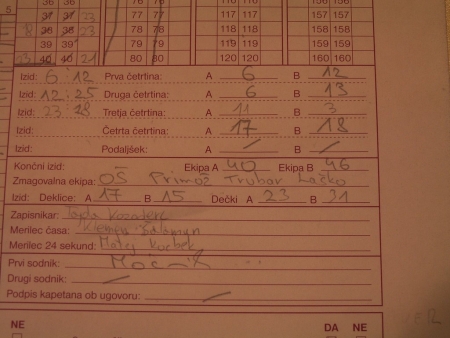 5 36 36 76 76 116 116 156 156
37 37 23 77 77 117 117 157 157
8 38 38 23 78 78 118 118 158 158
39 39 79 79 119 119 159 159
23 40 40 21 80 80 120 120 160 160
Izid: 6 : 12 Prva četrtina: A 6 B 12
Izid: 12 : 25 Druga četrtina: A 6 B 13
Izid: 23 : 28 Tretja četrtina: A 11 B 3
Izid: Četrta četrtina: A 17 B 18
Izid: Podaljšek: A / B /
Končni izid: Ekipa A 40 Ekipa B 46
Zmagovalna ekipe: OŠ Primož Trubar Laško
Izid: Deklice: A 17 B 15 Dečki: A 23 B 31
Zapisnikar:
Merilec časa: Klemen
Merilec 24 sekund: Matej
Prvi sodnik: Močnik ...
Drugi sodnik: /
Podpis kapetana ob ugovoru: /
NE DA NE